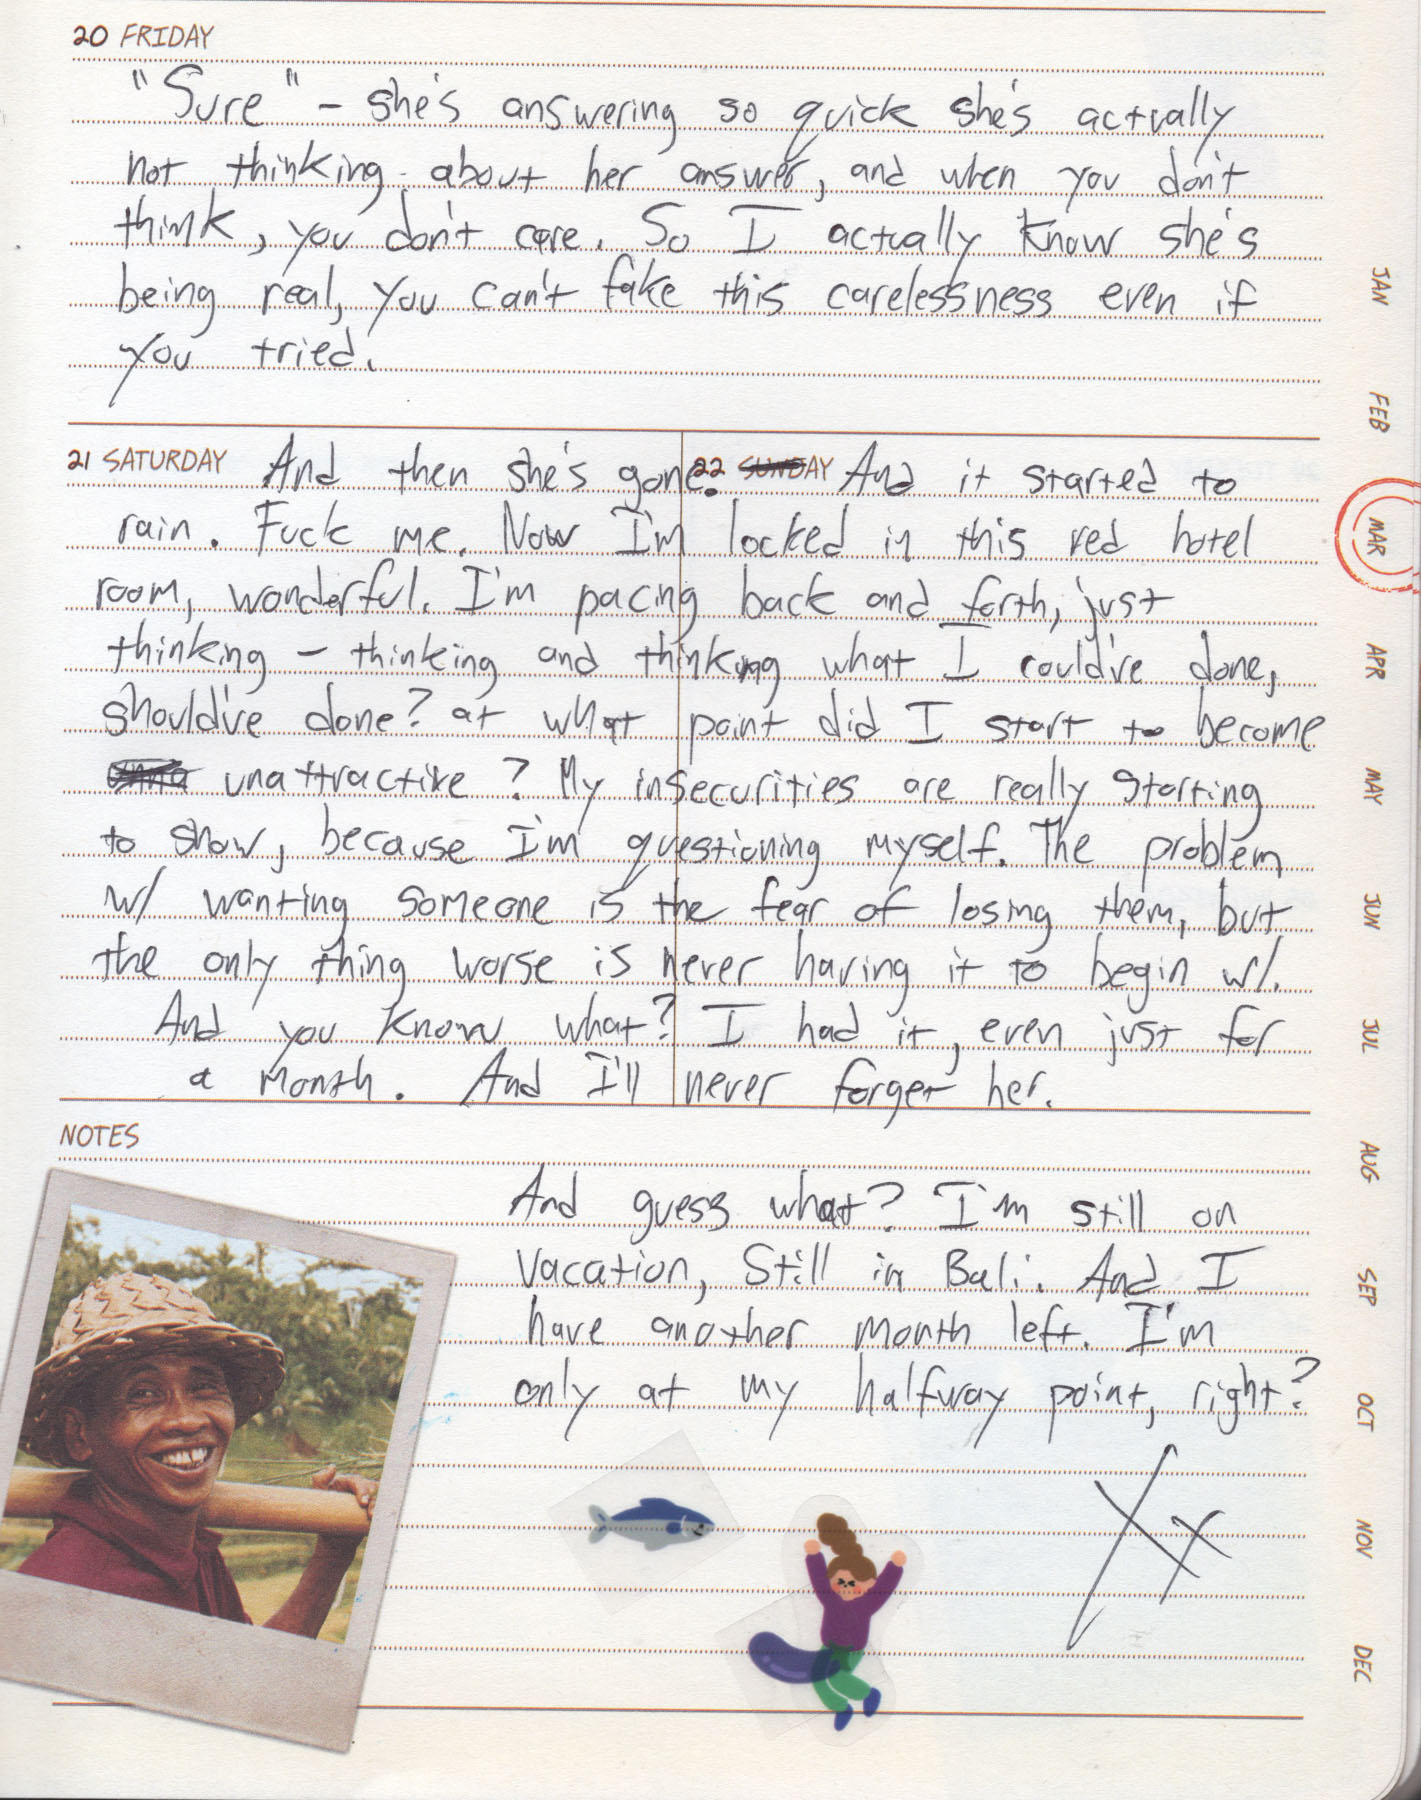 20 FRIDAY
"Sure" – she's answering so quick she's actually
not thinking about her answer, and when you don't
think, you don't care. So I actually know she's
being real, you can't fake this carelessness even if
you tried.
21 SATURDAY And then she's gone. 22 SUNDAY And it started to
rain. Fuck me. Now I'm locked in this red hotel
room, wonderful. I'm pacing back and forth, just
thinking – thinking and thinking what I could've done,
should've done? at what point did I start to become
unattractive? My insecurities are really starting
to show, because I'm questioning myself. The problem
w/ wanting someone is the fear of losing them, but
the only thing worse is never having it to begin w/.
And you know what? I had it, even just for
a month. And I'll never forget her.
NOTES
And guess what? I'm still on
vacation, Still in Bali. And I
have another month left. I'm
only at my halfway point, right?
Xx
JAN
FEB
MAR
APR
MAY
JUN
JUL
AUG
SEP
OCT
NOV
DEC